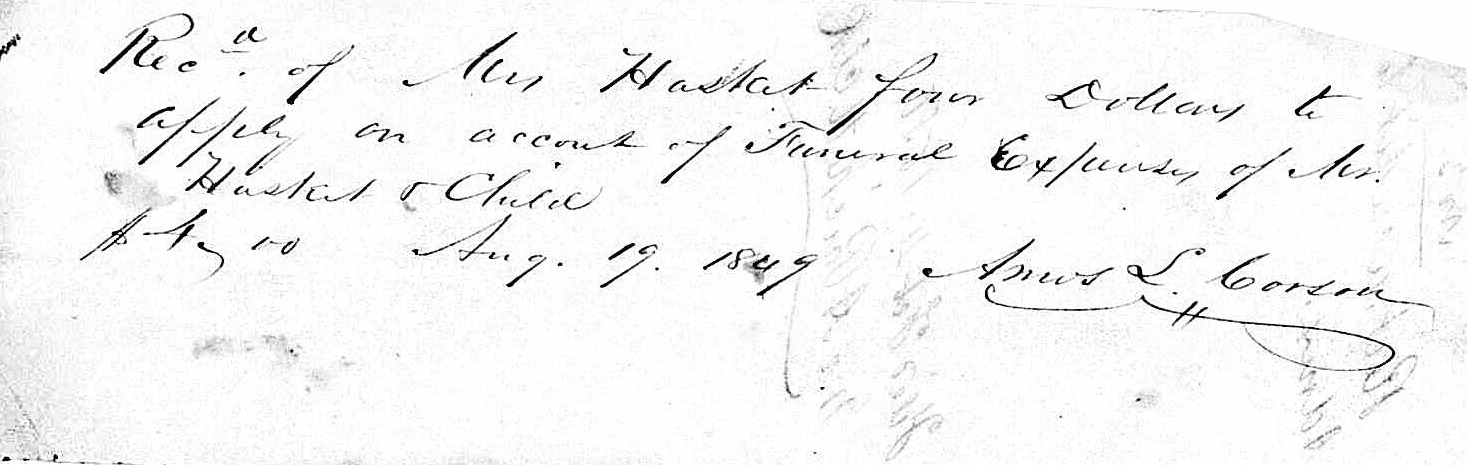 Rec.d of Mrs Haskat four Dollars to
apply on accout of Funeral Expenses of Mr.
Haskat & Child
$4,00 Aug. 19. 1849 Amos L. Corson